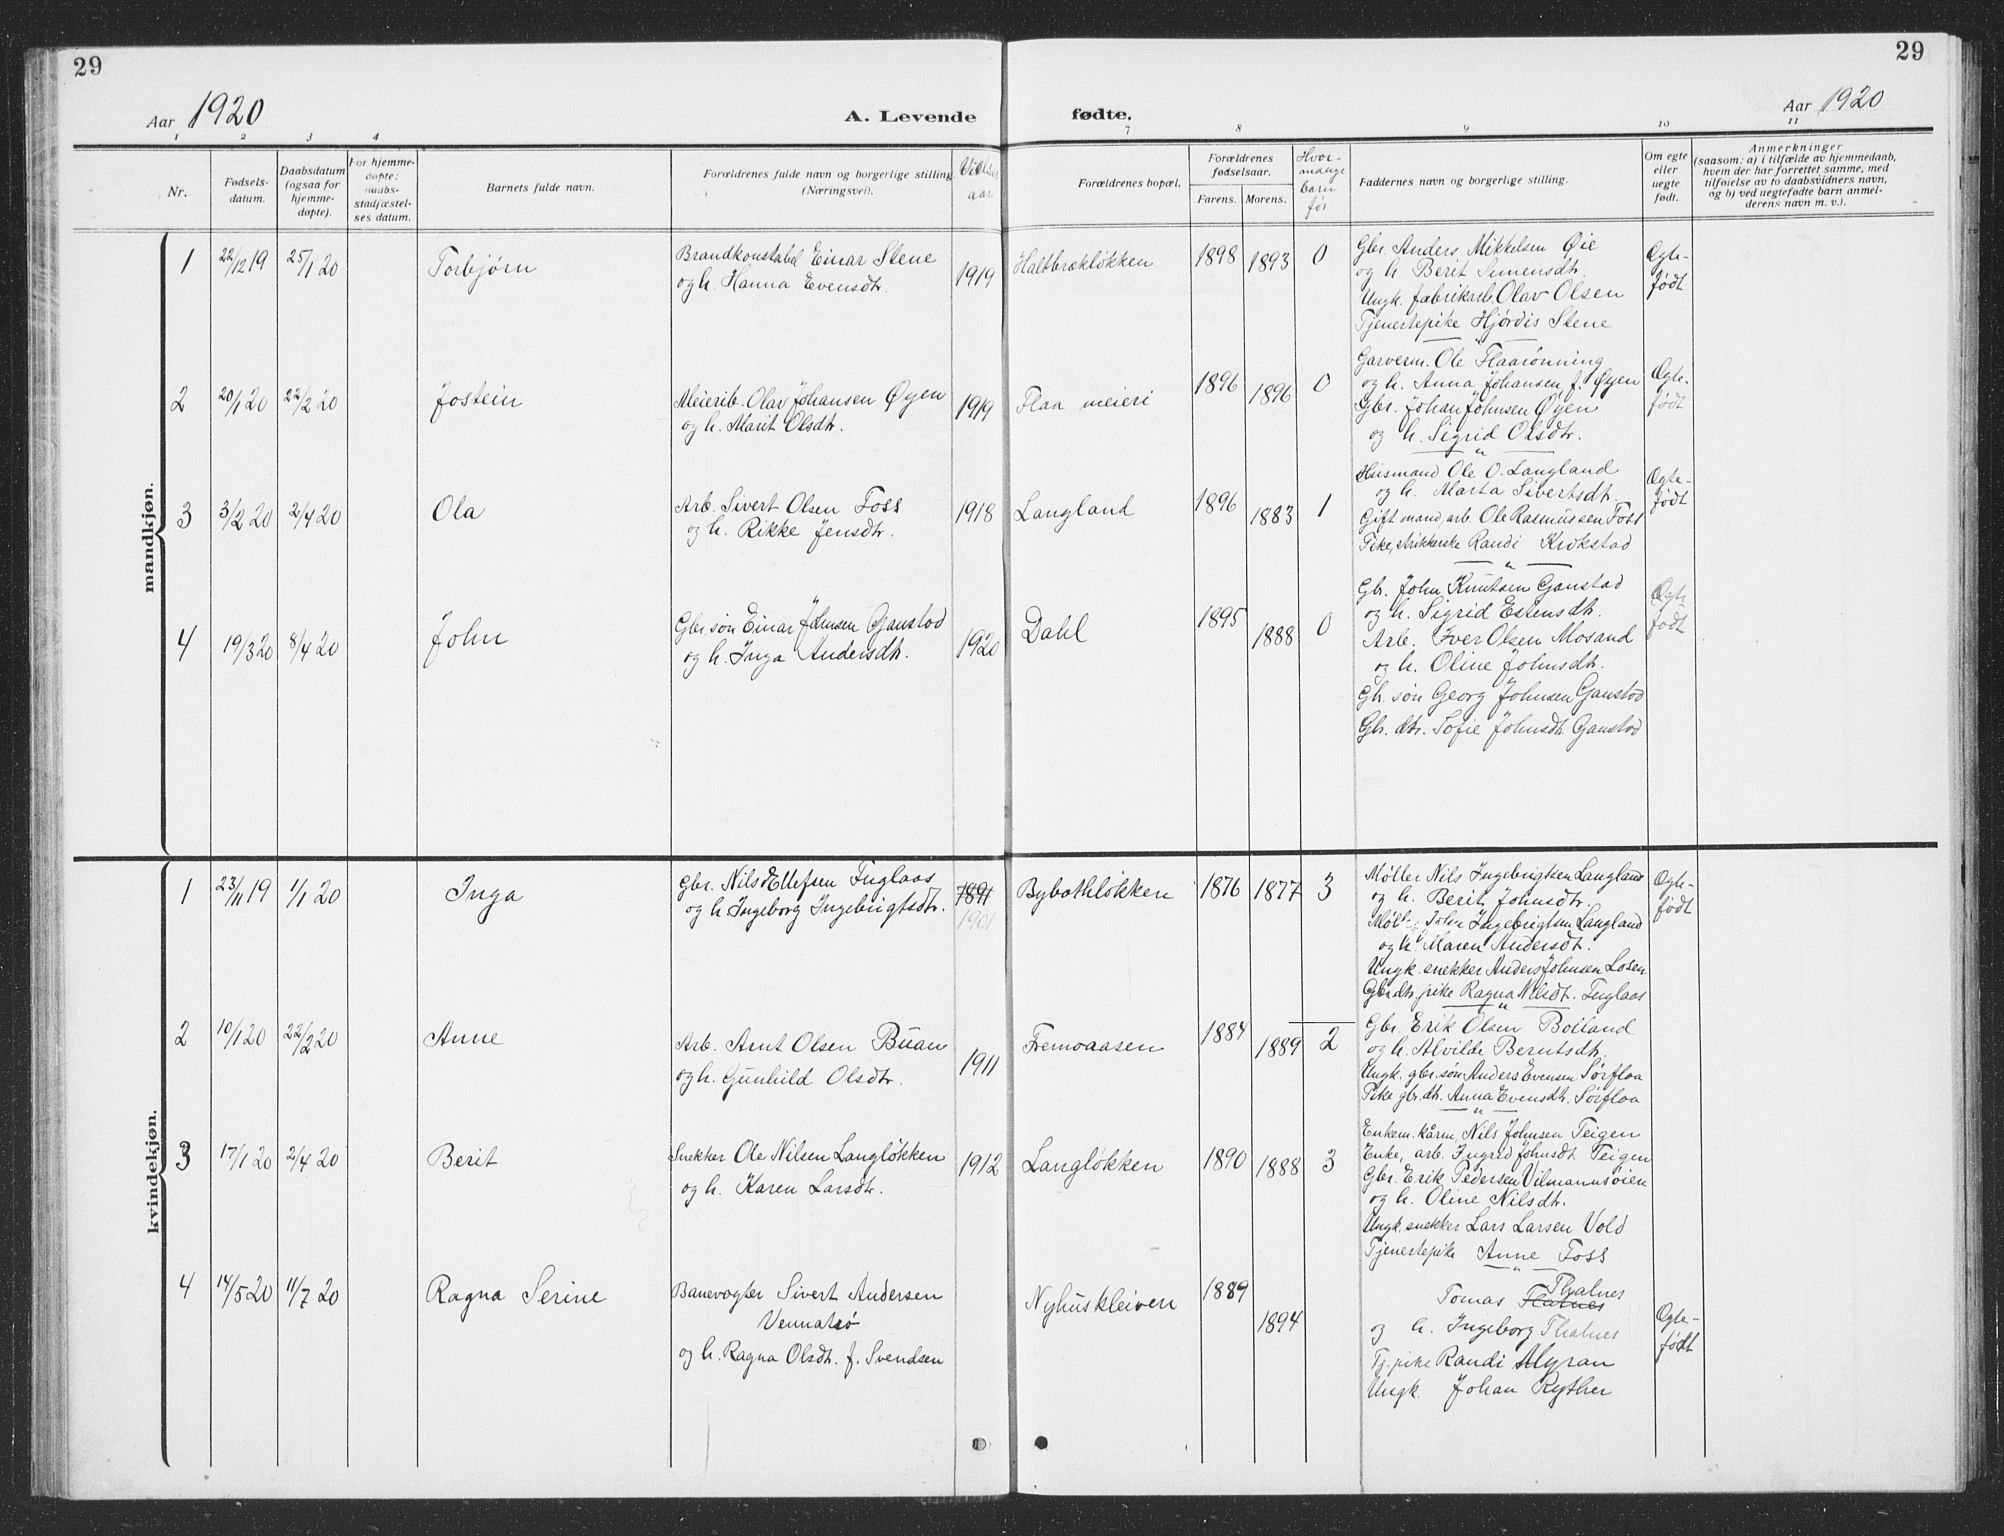 29
29
Aar 1920
A. Levende
fødte.
Aar 1920
1 2 3 4
7 8 9 10 11
Nr.
Fødsels-
datum.
Daabsdatum
(ogsaa for
hjemme-
døpte).
For hjemme-
døpte:
daabs-
stadfæstel-
ses datum.
Barnets fulde navn.
Forældrenes fulde navn og borgerlige stilling
(Næringsvei).
Vielses
aar
Forældrenes bopæl.
Forældrenes
fødselsaar.
Farens. Morens.
Hvor-
mange
barn
før
Faddernes navn og borgerlige stilling.
Om egte
eller
uegte
født.
Anmerkninger
(saasom: a) i tilfælde av hjemmedaab,
hvem der har forrettet samme, med
tilføielse av to daabsvidners navn,
og b) ved uegtefødte barn anmel-
derens navn m. v.).
mandkjøn.
1 22/12 19 25/1 20 Torbjørn
Brandkonstabel Einar Stene
og h. Hanna Evensdtr.
1919 Haltbrækløkken 1898 1893 0
Gbr. Anders Mikkelsen Øie
og h. Berit Simensdtr.
Ungk. fabrikarb. Olav Olsen
Tjenestepike Hjørdis Stene
Ægte-
født
2 20/1 20 22/2 20 Jostein
Meierib. Olav Johansen Øyen
og h. Marit Olsdtr.
1919 Flaa meieri 1896 1896 0
Garverm. Ole Flaarønning
og h. Anna Johansen f. Øyen
Gbr. Johan Johnsen Øyen
og h. Sigrid Olsdtr.
Ægte-
født
3 3/2 20 2/4 20 Ola
Arb. Sivert Olsen Foss
og h. Rikke Jensdtr.
1918 Langland 1896 1883 1
Husmand Ole O. Langland
og h. Marta Sivertsdtr.
Gift mand, arb. Ole Rasmussen Foss
Pike, strikkerske Randi Krokstad
Ægte-
født
4 19/3 20 8/4 20 John
Gbr. søn Einar Johnsen Ganstad
og h. Inga Andersdtr.
1920 Dahl 1895 1888 0
Gbr. John Knutsen Ganstad
og h. Sigrid Estensdtr.
Arb. Iver Olsen Mosand
og h. Oline Johnsdtr.
Gbr. søn Georg Johnsen Ganstad
Gbr. dtr. Sofie Johnsdtr. Ganstad
Ægte
født
kvindekjøn.
1 23/11 19 1/1 20 Inga
Gbr. Nils Ellefsen Fuglaas
og h. Ingeborg Ingebrigtsdtr.
1891
1901
Bybothløkken 1876 1877 3
Møller Nils Ingebrigtsen Langland
og h. Berit Johnsdtr.
Møll. John Ingebrigtsen Langland
og h. Maren Andersdtr.
Ungk. snekker Anders Johnsen Losen
Gbrdtr, pike Ragna Nilsdtr. Fuglaas
Ægte-
født
2 10/1 20 22/2 20 Anne
Arb. Arnt Olsen Buan
og h. Gunhild Olsdtr.
1911 Fremoaasen 1884 1889 2
Gbr. Erik Olsen Bolland
og h. Alvilde Berntsdtr.
Ungk. gbr. søn Anders Evensen Sørflaa
Pike gbr. dtr. Anna Evensdtr. Sørflaa
3 17/1 20 2/4 20 Berit
Snekker Ole Nilsen Langløkken
og h. Karen Larsdtr.
1912 Langløkken 1890 1888 3
Enkem. kårm. Nils Johnsen Teigen
Enke, arb. Ingrid Johnsdt. Teigen
Gbr. Erik Pedersen Vilmannsøien
og h. Oline Nilsdtr.
Ungk. snekker Lars Larsen Vold
Tjenestepike Anne Foss
4 14/5 20 11/7 20 Ragna Serine
Banevogter Sivert Andersen
Vennatrø
og h. Ragna Olsdtr. f. Svendsen
Nyhuskleiven 1889 1894
Thalnes
Tomas Flatnes
og h. Ingeborg Thalnes
Tj. pike Randi Myran
Ungk. Johan Ryther
Ægte-
født